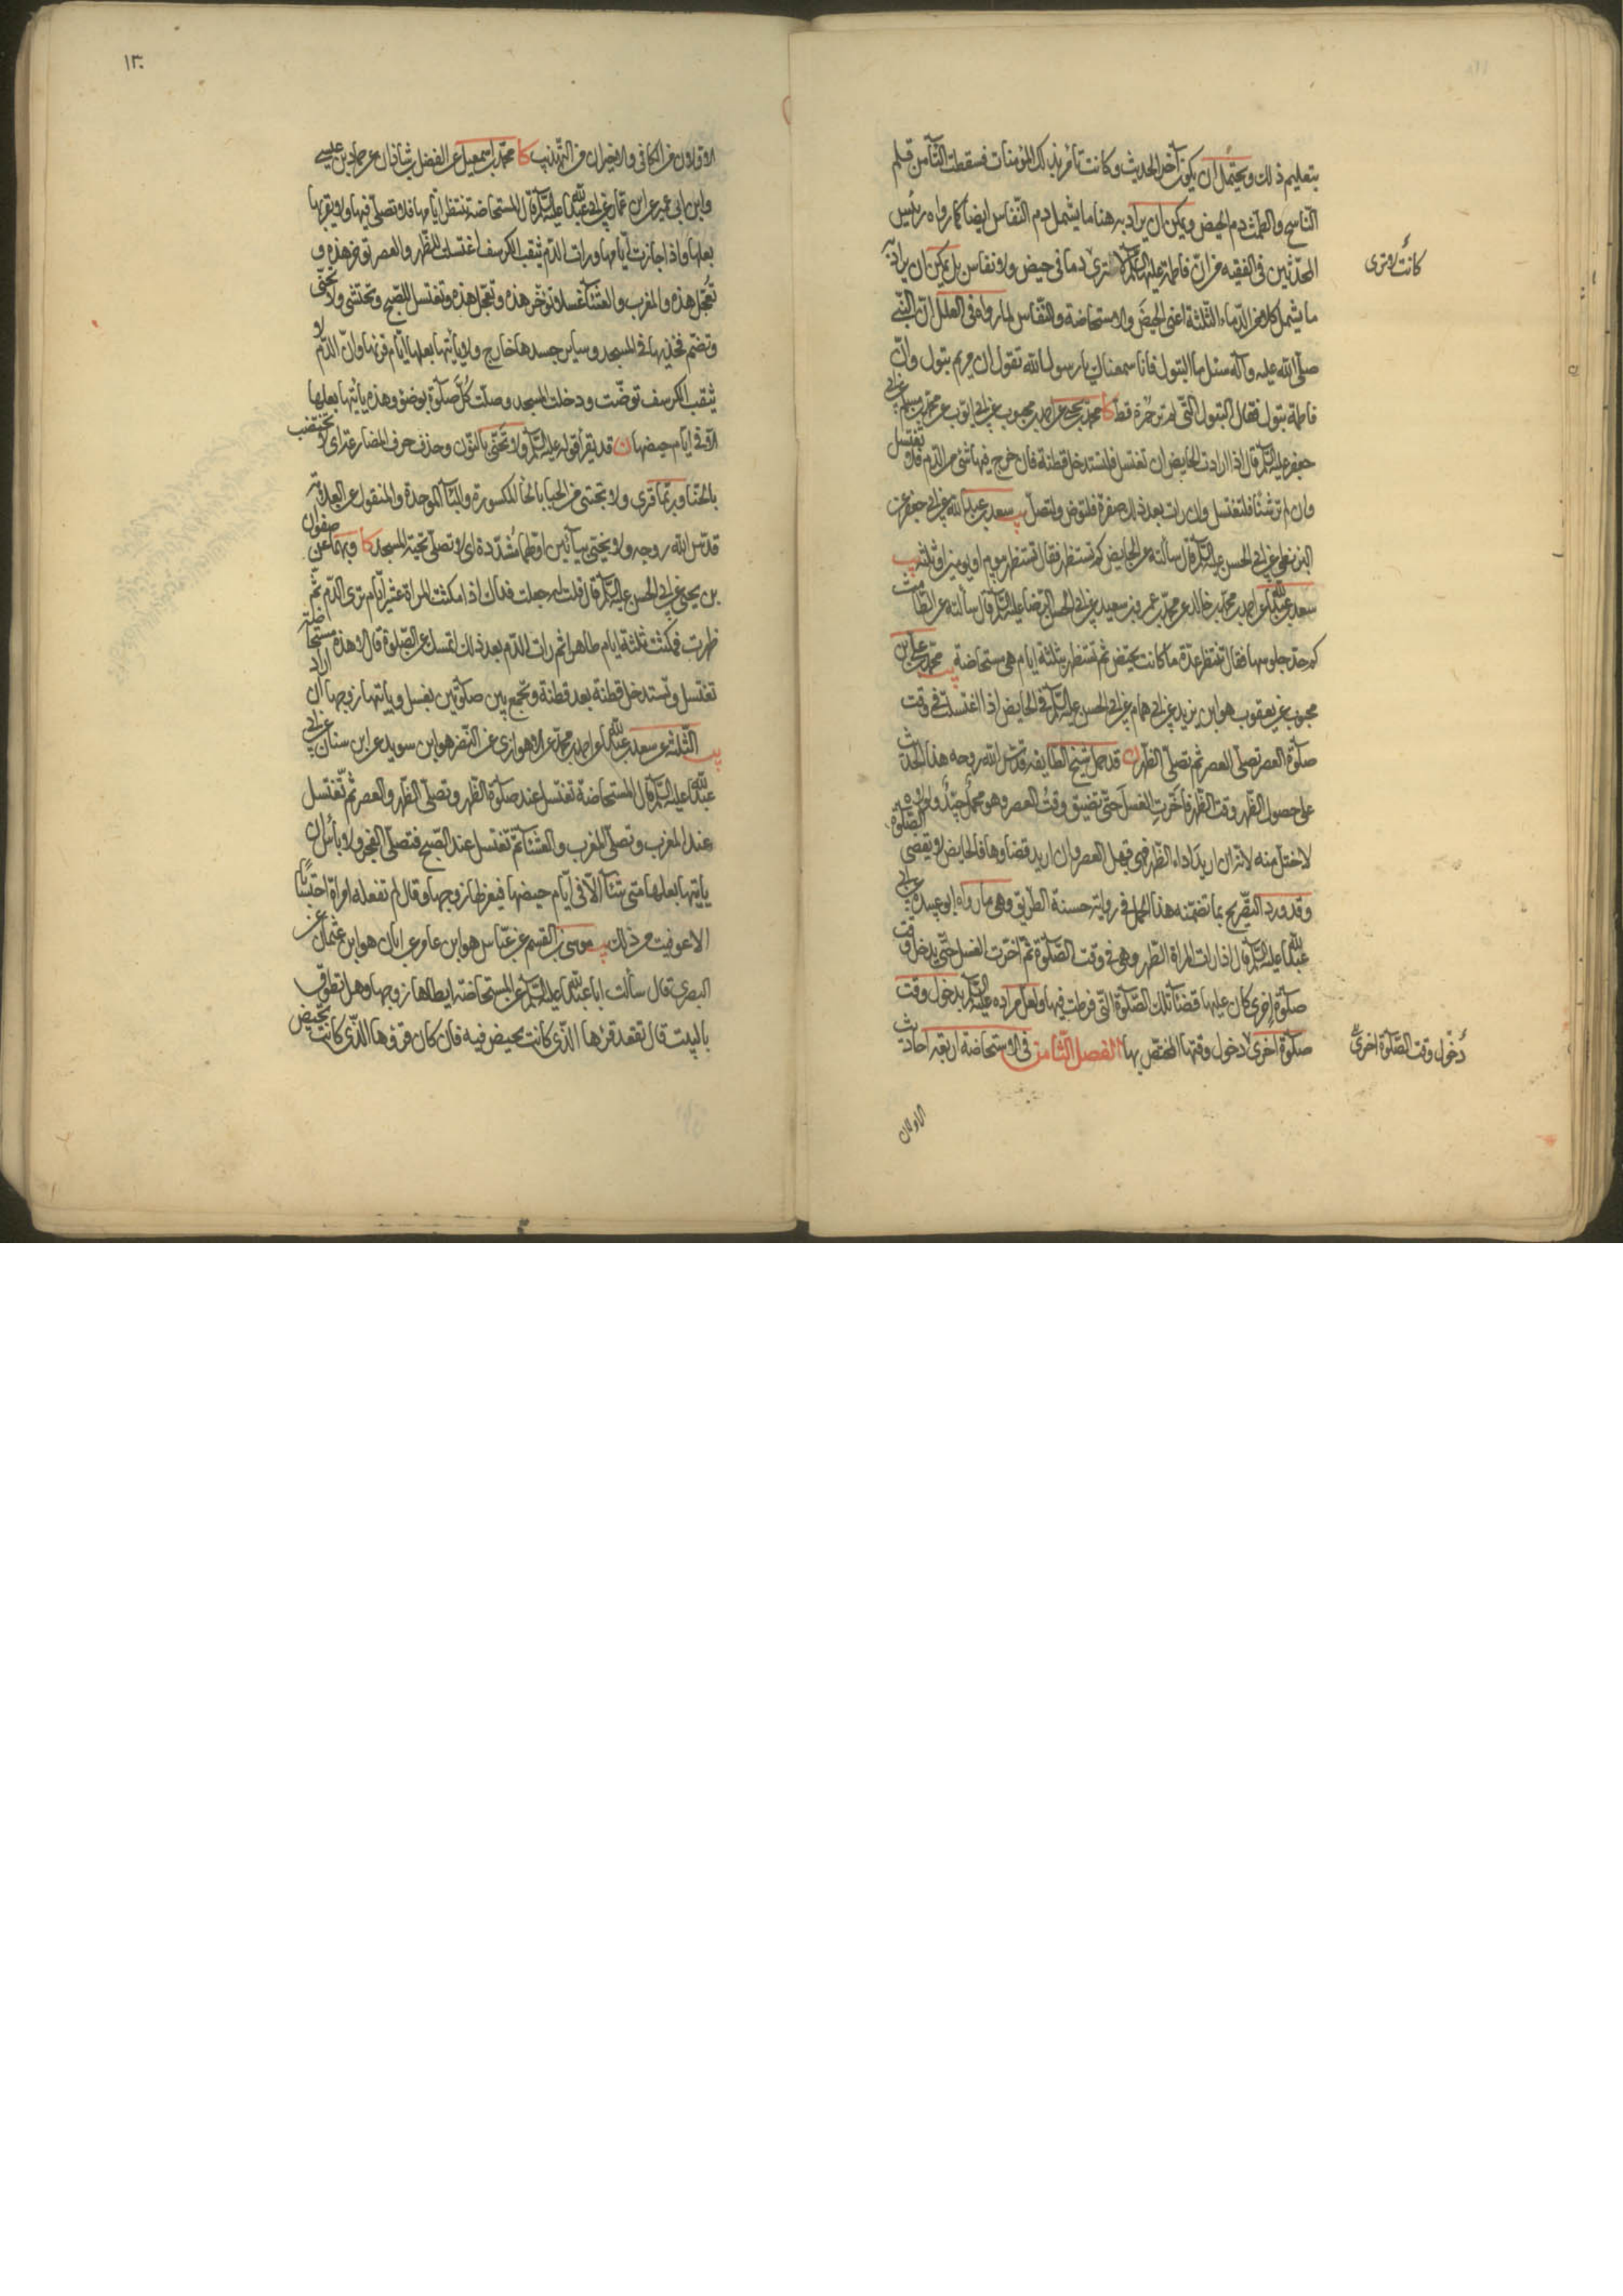 بتعليم ذلك ويحتمل أن يكون آخر الحديث وكانت تأمر بذلك المؤمنات فسقطت التآء من قلم
النّاسخ والطمث دم الحيض ويمكن ان يراد به هنا ما يشمل دم النّفاس ايضا كما رواه رئيس
المحدّثين فى الفقيه من انّ فاطمة عليها السّلم لا ترى دما فى حيض ولا نفاس بل يمكن ان يراد به
كانت لا ترى
ما يشمل كلا من الدّماء الثّلثة اعنى الحيض والاستحاضة والنّفاس لما رواه فى العلل انّ النّبى
صلّى الله عليه وآله سئل ما البتول فانا سمعناك يا رسول الله تقول ان مريم بتول وانّ
فاطمة بتول فقال البتول التّى لم تر حمرة قطّ كا محمّد بن يحيى عن احمد عن بن محبوب عن ابى ايوب عن محمّد بن مسلم عن ابى
جعفر عليه السّلم قال اذا ارادت الحايض ان تغتسل فلتستدخل قطنة فان خرج فيها شئ من الدّم فلا تغتسل
وان لم تر شيئا فلتغتسل وان رات بعد ذلك صفرة فلتوضّ ولتصلّ يب سعد بن عبد الله عن ابى جعفر عن
البزنطى عن ابى الحسن عليه السّلم قال سألته عن الحايض كم تستظهر فقال تستظهر بيوم او يومين او ثلثة يب
سعد بن عبد الله عن احمد بن محمّد بن خالد عن محمّد بن عمرو بن سعيد عن ابى الحسن الرّضا عليه السّلم قال سألته عن الطّامث
كم حدّ جلوسها فقال تنتظر عدّة ما كانت تحيض ثم تستظهر بثلثة ايام ثم هى مستحاضة يب محمّد بن على بن
محبوب عن يعقوب هو ابن يزيد عن ابى همام عن ابى الحسن عليه السّلم فى الحايض اذا اغتسلت فى وقت
صلوة العصر تصلّى العصر ثم تصلّى الظّهر ن قد حمل شيخ الطّايفه قدّس الله روحه هذا الحديث
على حصول الطّهر وقت الظّهر فاخّرت الغسل حتّى تضيّق وقت العصر وهو محمل جيّد ولولاه
لاختلّ متنه لانّه ان اريد اداء الظّهر فهى قبل العصر وان اريد قضاؤها فالحايض لا تقضى الصّلوة
وقد ورد التّصريح بما تضمّنه هذا الحمل فى رواية حسنة الطّريق وهى ما رواه ابو عبيده عن ابى
عبد الله عليه السّلم قال اذا رات المراة الطّهر وهى فى وقت الصّلوة ثم اخّرت الغسل حتّى يدخل وقت
صلوة اخرى كان عليها قضآء تلك الصّلوة التّى فرطت فيها ولعلّ مراده عليه السّلم بدخول وقت
صلوة اخرى دخول وقتها المختص بها الفصل الثّامن فى الاستحاضة اربعة احاديث
دخول وقت الصّلوة اخرى
الاولان
١٣٠
الاوّلان من الكافى والاخيران من التّهذيب كا محمّد بن اسمعيل عن الفضل بن شاذان عن حمّاد بن عيسى
وابن ابى عمير عن ابن عمّار عن ابى عبد الله عليه السّلم قال المستحاضة تنتظر ايّامها فلا تصلّى فيها ولا يقربها
بعلها واذا جازت ايّامها ورات الدّم يثقب الكرسف اغتسلت للظّهر والعصر تؤخّر هذه و
تعجّل هذه وللمغرب والعشآء غسلا تؤخّر هذه وتعجّل هذه وتغتسل للصّبح وتحتشى ولا تحنّى
وتضمّ فخذيها فى المسجد وساير جسدها خارج ولا يأتيها بعلها ايّام قرئها وان كان الدّم لا
يثقب الكرسف توضّت ودخلت المسجد وصلّت كلّ صلوة بوضوء وهذه يأتيها بعلها
الاّ فى ايام حيضها ن قد يقرأ قوله عليه السّلم ولا تحنّى بالنّون وحذف حرف المضارعة اى لا تختضب
بالحنّا وربّما قرى ولا تحتبى من الحبا بالحآء المكسورة والبآء الموحدة والمنقول عن العلامه
قدّس الله روحه ولا تحيّى بيائين اوليهما مشدّدة اى لا تصلّى تحية المسجد كا وبهما عن صفوان
بن يحيى عن ابى الحسن عليه السّلم قال قلت له جعلت فداك اذا مكثت المراة عشر ايّام ترى الدّم ثمّ
طهرت فمكثت ثلثة ايام طاهرا ثم رات الدّم بعد ذلك اتمسك عن الصّلوة قال لا هذه مستحاضة
تغتسل وتستدخل قطنة بعد قطنة وتجمع بين صلوتين بغسل وياتيها زوجها ان اراد
يب الثّلثة عن سعد بن عبد الله عن احمد بن محمّد عن الاهوازى عن النّضر هو ابن سويد عن ابن سنان عن ابى
عبد الله عليه السّلم قال المستحاضة تغتسل عند صلوة الظّهر وتصلّى الظّهر والعصر ثم تغتسل
عند المغرب وتصلّى المغرب والعشآء ثمّ تغتسل عند الصّبح فتصلّى الفجر ولا بأس ان
يايتها بعلها متى شآء الاّ فى ايّام حيضها فيعتزلها زوجها وقال لم تفعله امراة احتسابا
الا عوفيت من ذلك يب موسى بن القسم عن عبّاس هو ابن عامر عن ابان هو ابن عثمان عن
البصرى قال سألت ابا عبد الله عليه السّلم عن المستحاضة ايطاها زوجها وهل تطوف
بالبيت قال تقعد قرئها الذّى كانت تحيض فيه فان كان قرؤها الذّى كانت تحيض